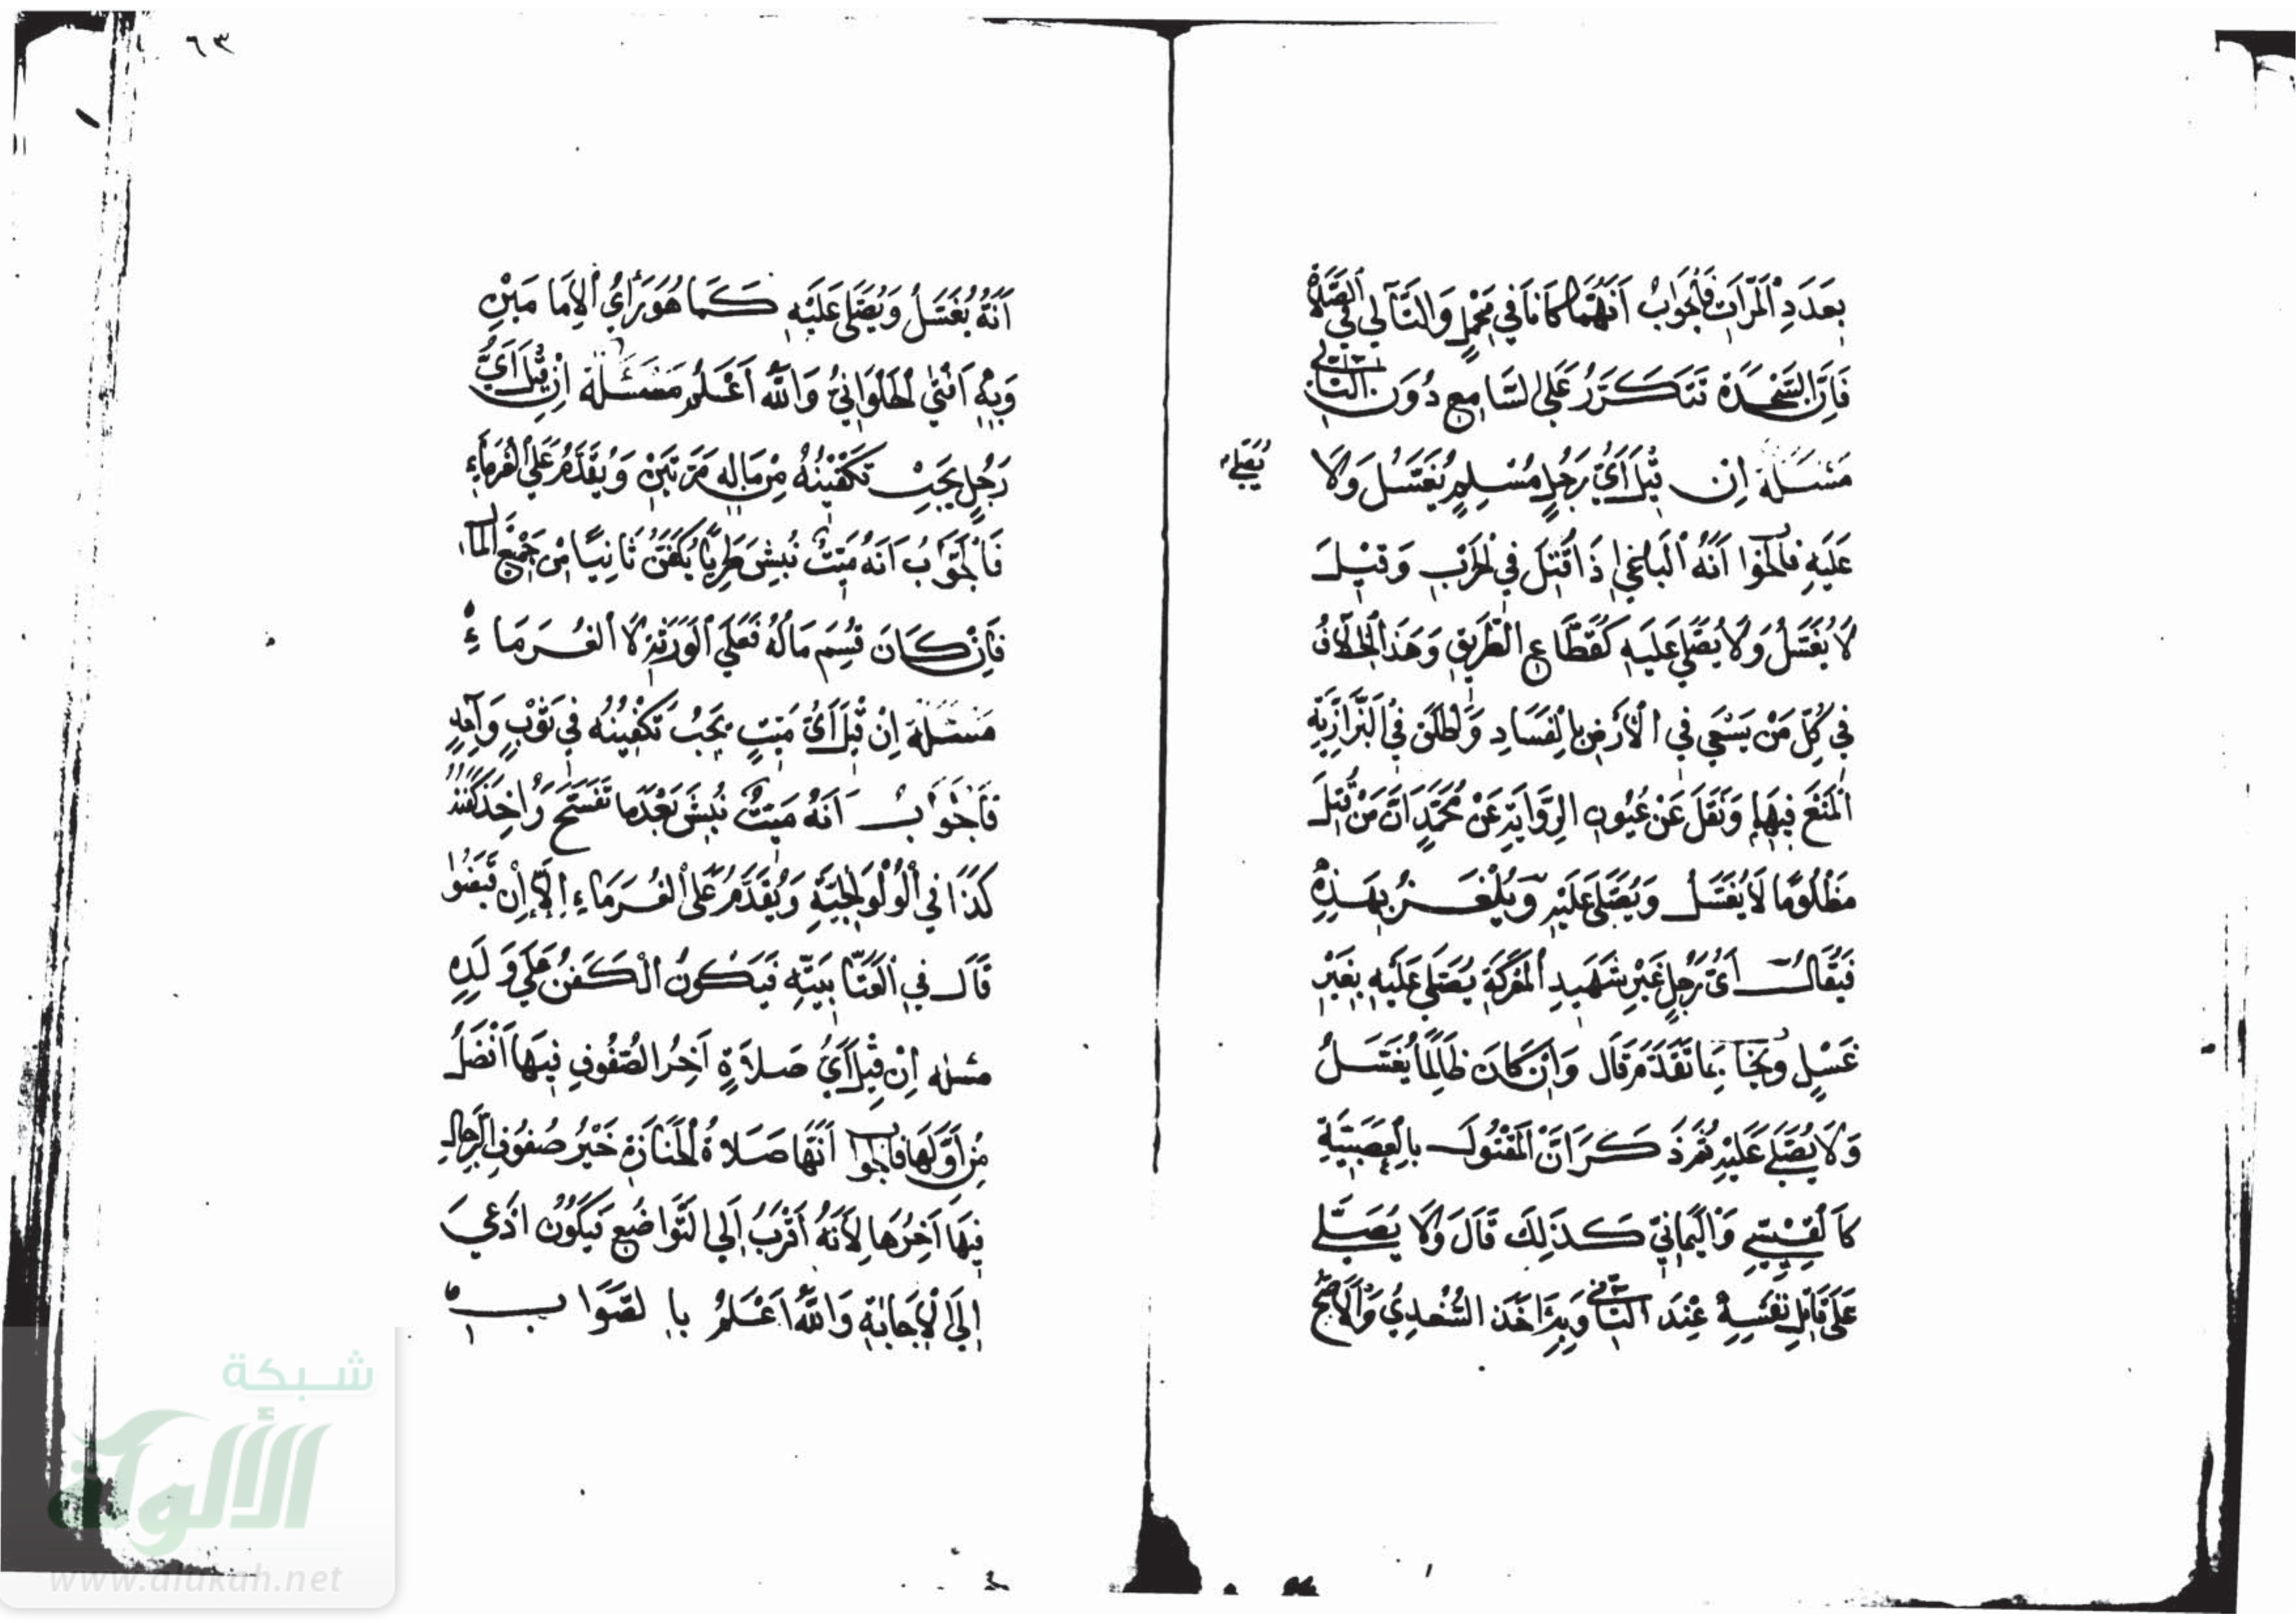 بِعَدَدِ الْمَرَّاتِ فَالْجَوَابُ اَنَّهُمَا كَانَا فِي مَحْمِلٍ وَالتَّالِي فِي الصَّلَاةِ
فَاِنَّ السَّجْدَةَ تَتَكَرَّرُ عَلَى السَّامِعِ دُوَن التَّالِي
مَسْئَلَة اِن قِيلَ اَيُّ رَجُلٍ مُسْلِمٍ يُغَسَّلُ وَلَا
يُصَلَّى
عَلَيْهِ فالجوا اَنَّهُ الْبَاغِي اِذَا قُتِلَ فِي الْحَرْبِ وَقِيلَ
لَا يُغَسَّلُ وَلَا يُصَلَّى عَلَيْهِ كَقُطَّاعِ الطَّرِيقِ وَهَذَا الْخِلَافُ
فِي كُلِّ مَنْ يَسْعَى فِي الْاَرْضِ بِالْفَسَادِ وَاَطْلَقَ فِي الْبَزَّازِيَّةِ
الْمَنْعَ فِيهِمْ وَنَقَلَ عَنْ عُيُونِ الرِّوَايَةِ عَنْ مُحَمَّدٍ اَنَّ مَنْ قُتِلَ
مَظْلُومًا لَا يُغَسَّلُ وَيُصَلَّى عَلَيْهِ وَيُلْغَزُ بِهَذِهِ
فَيُقَالُ اَيُّ رَجُلٍ غَيْرِ شَهِيدِ الْمَعْرَكَةِ يُصَلَّى عَلَيْهِ بِغَيْرِ
غَسْلٍ وَيُجَا بِمَا تَقَدَّمَ قَالَ وَاِنْ كَانَ ظَالِمًا يُغَسَّلُ
وَلَا يُصَلَّى عَلَيْهِ ثُمَّ ذَكَرَ اَنَّ الْمَقْتُولَ بِالْعَصَبِيَّةِ
كَالْقَيْسِي وَالْيَمَانِيّ كَذَلِكَ قَالَ وَلَا يُصَلَّى
عَلَى قَاتِلِ نَفْسِهِ عِنْدَ الثَّانِي وَبِهِ اَخَذَ السُّغْدِيُ وَالْاَصَحُّ
٦٣
اَنَّهُ يُغَسَّلُ وَيُصَلَّى عَلَيْهِ كَمَا هُوَ رَاْيُ الْاِمَامَيْنِ
وَبِهِ اَفْتَى الْحَلْوَانِيُّ وَاللّٰهُ اَعْلَمُ مَسْئَلَة اِنْ قِيلَ اَيُّ
رَجُلٍ يَجِبُ تَكْفِينُهُ مِنْ مَالِهِ مَرَّتَيْنِ وَيُقَدَّمُ عَلَى الْغُرَمَاءِ
فَالْجَوَابُ اَنَّهُ مَيِّتٌ نُبِشَ طَرِيًّا يُكَفَّنُ ثَانِيًا مِنْ جَمِيعِ الْمَال
فَاِنْ كَانَ قُسِمَ مَالُهُ فَعَلَى الْوَرَثَةِ لَا الْغُرَمَاءِ
مَسْئَلَة اِنْ قِيلَ اَيُّ مَيِّتٍ يَجِبُ تَكْفِينُهُ فِي ثَوْبٍ وَاحِدٍ
فَالْجَوَابُ اَنَّهُ مَيِّتٌ نُبِشَ بَعْدَمَا تَفَسَّخَ وَاُخِذَ كَفَنُهُ
كَذَا فِي الْوُلْوَالِجِيَّةِ وَيُقَدَّمُ عَلَى الْغُرَمَاءِ اِلَّا اِنْ قَبَضُوا
قَالَ فِي الْعَتَّابِيَّةِ فَيَكُونُ الْكَفَنُ عَلَى وَلَدِهِ
مسئله اِنْ قِيلَ اَيُّ صَلَاةٍ اَخِرُ الصُّفُوفِ فِيهَا اَفْضَلُ
مِنْ اَوَّلِهَا فالجوا اَنَّهَا صَلَاةُ الْجَنَازَةِ خَيْرُ صُفُوفِ الرِّجَالِ
فِيهَا اَخِرُهَا لِاَنَّهُ اَقْرَبُ اِلَى التَّوَاضُعِ فَيَكُونُ اَدْعَى
اِلَى الْاِجَابَةِ وَاللّٰهُ اَعْلَمُ بِالصَّوَابِ
شبكة
الألوكة
www.alukah.net